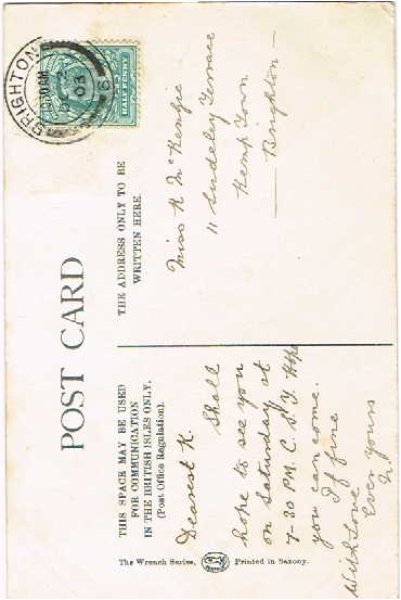 POST CARD
THIS SPACE MAY BE USED
FOR COMMUNICATION
IN THE BRITISH ISLES ONLY.
(Post Office Regulation).
THE ADDRESS ONLY TO BE
WRITTEN HERE.
BRIGHTON
03
HALF PENNY
Dearest K.
Shall
hope to see you
on Saturday at
7-30 P.M. C. S. Y. Hope
you can come.
If fine
Ever yours
With love
Miss K McKenzie
11 Sudeley Terrace
Kemp Town
Brighton —
The Wrench Series, Printed in Saxony.